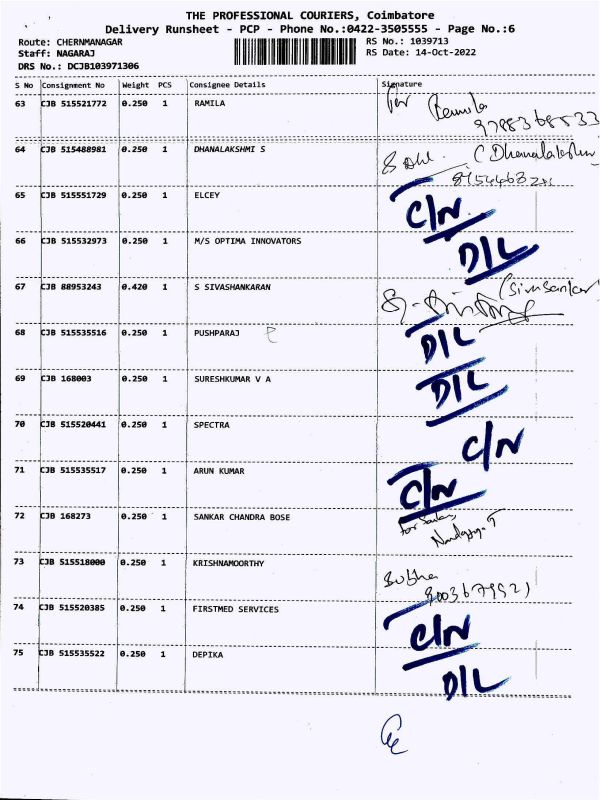 THE PROFESSIONAL COURIERS, Coimbatore
Delivery Runsheet - PCP - Phone No.:0422-3505555 - Page No.:6
Route: CHERNMANAGAR
RS No.: 1039713
Staff: NAGARAJ
RS Date: 14-Oct-2022
DRS No.: DCJB103971306
S No Consignment No Weight PCS Consignee Details Signature
63 CJB 515521772 0.250 1 RAMILA
Ramila
9788368533
64 CJB 515488981 0.250 1 DHANALAKSHMI S
65 CJB 515551729 0.250 1 ELCEY C/N
66 CJB 515532973 0.250 1 M/S OPTIMA INNOVATORS D/L
67 CJB 88953243 0.420 1 S SIVASHANKARAN
68 CJB 515535516 0.250 1 PUSHPARAJ D/L
69 CJB 168003 0.250 1 SURESHKUMAR V A D/L
70 CJB 515520441 0.250 1 SPECTRA C/N
71 CJB 515535517 0.250 1 ARUN KUMAR C/N
72 CJB 168273 0.250 1 SANKAR CHANDRA BOSE
73 CJB 515518000 0.250 1 KRISHNAMOORTHY
Subha
74 CJB 515520385 0.250 1 FIRSTMED SERVICES C/N
75 CJB 515535522 0.250 1 DEPIKA D/L